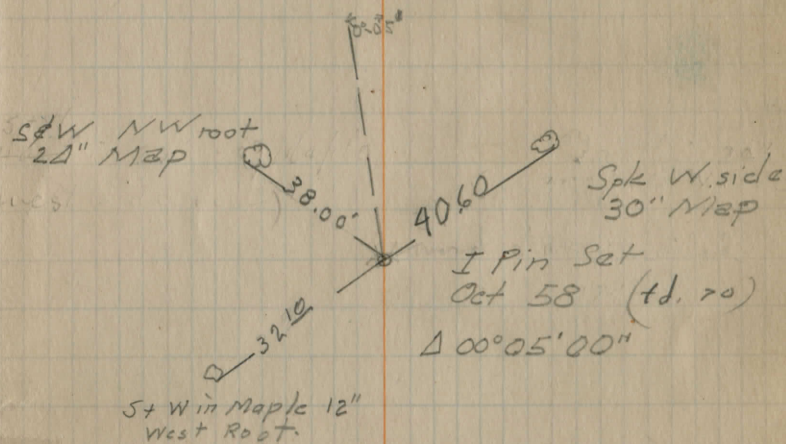 0-05"
S&W NW root
24" Map
38.00'
40.60
Spk W. side
30" Map
I Pin Set
Oct 58 (fd. 70)
Δ 00°05'00"
32.10
S+W in Maple 12"
West Root.